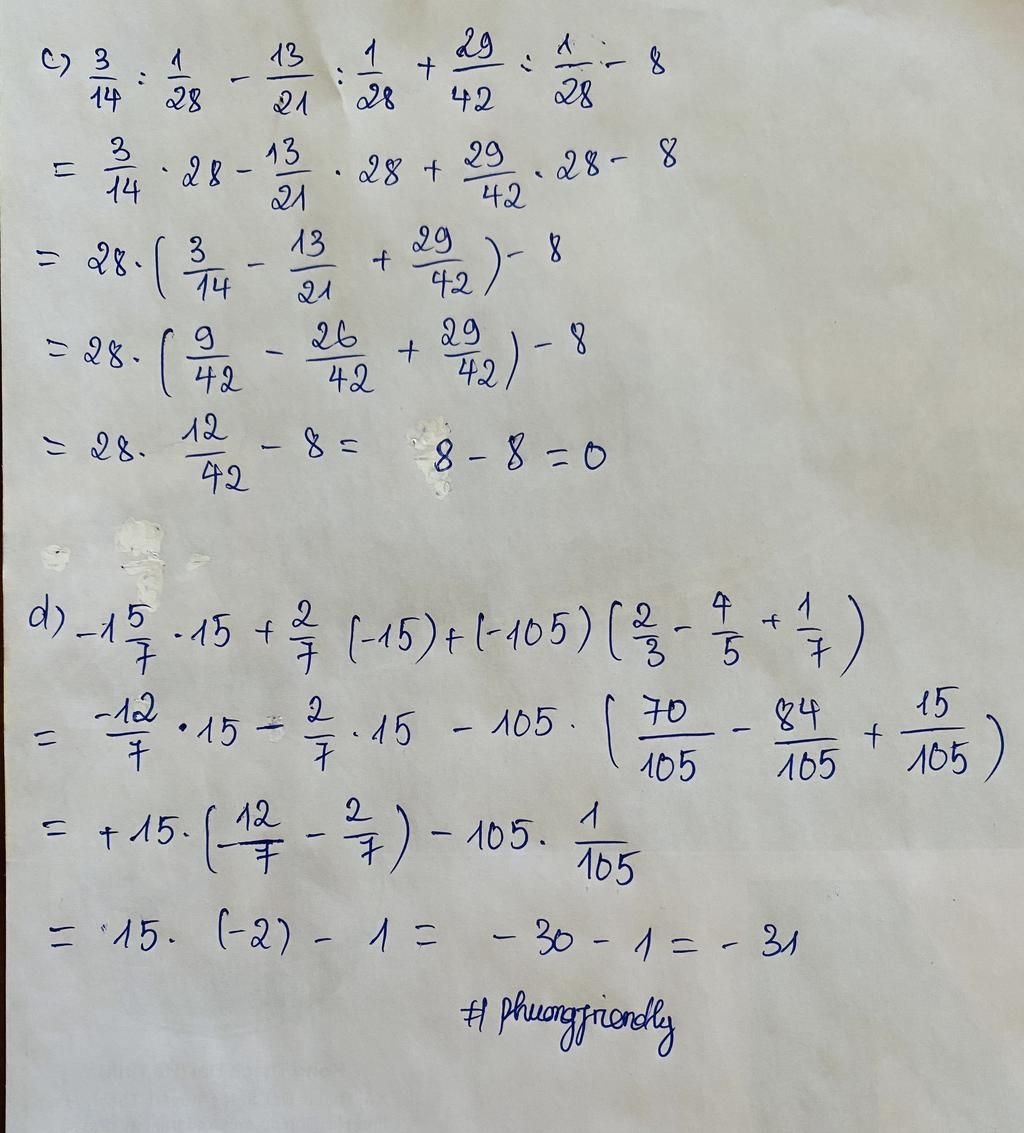 c) 3/14 : 1/28 - 13/21 : 1/28 + 29/42 : 1/28 - 8
= 3/14 · 28 - 13/21 · 28 + 29/42 · 28 - 8
= 28 · (3/14 - 13/21 + 29/42) - 8
= 28 · (9/42 - 26/42 + 29/42) - 8
= 28 · 12/42 - 8 = 8 - 8 = 0
d) -1 5/7 · 15 + 2/7 (-15) + (-105) (2/3 - 4/5 + 1/7)
= -12/7 · 15 - 2/7 · 15 - 105 · (70/105 - 84/105 + 15/105)
= +15 · (-12/7 - 2/7) - 105 · 1/105
= 15 · (-2) - 1 = -30 - 1 = -31
# phuongfriendly